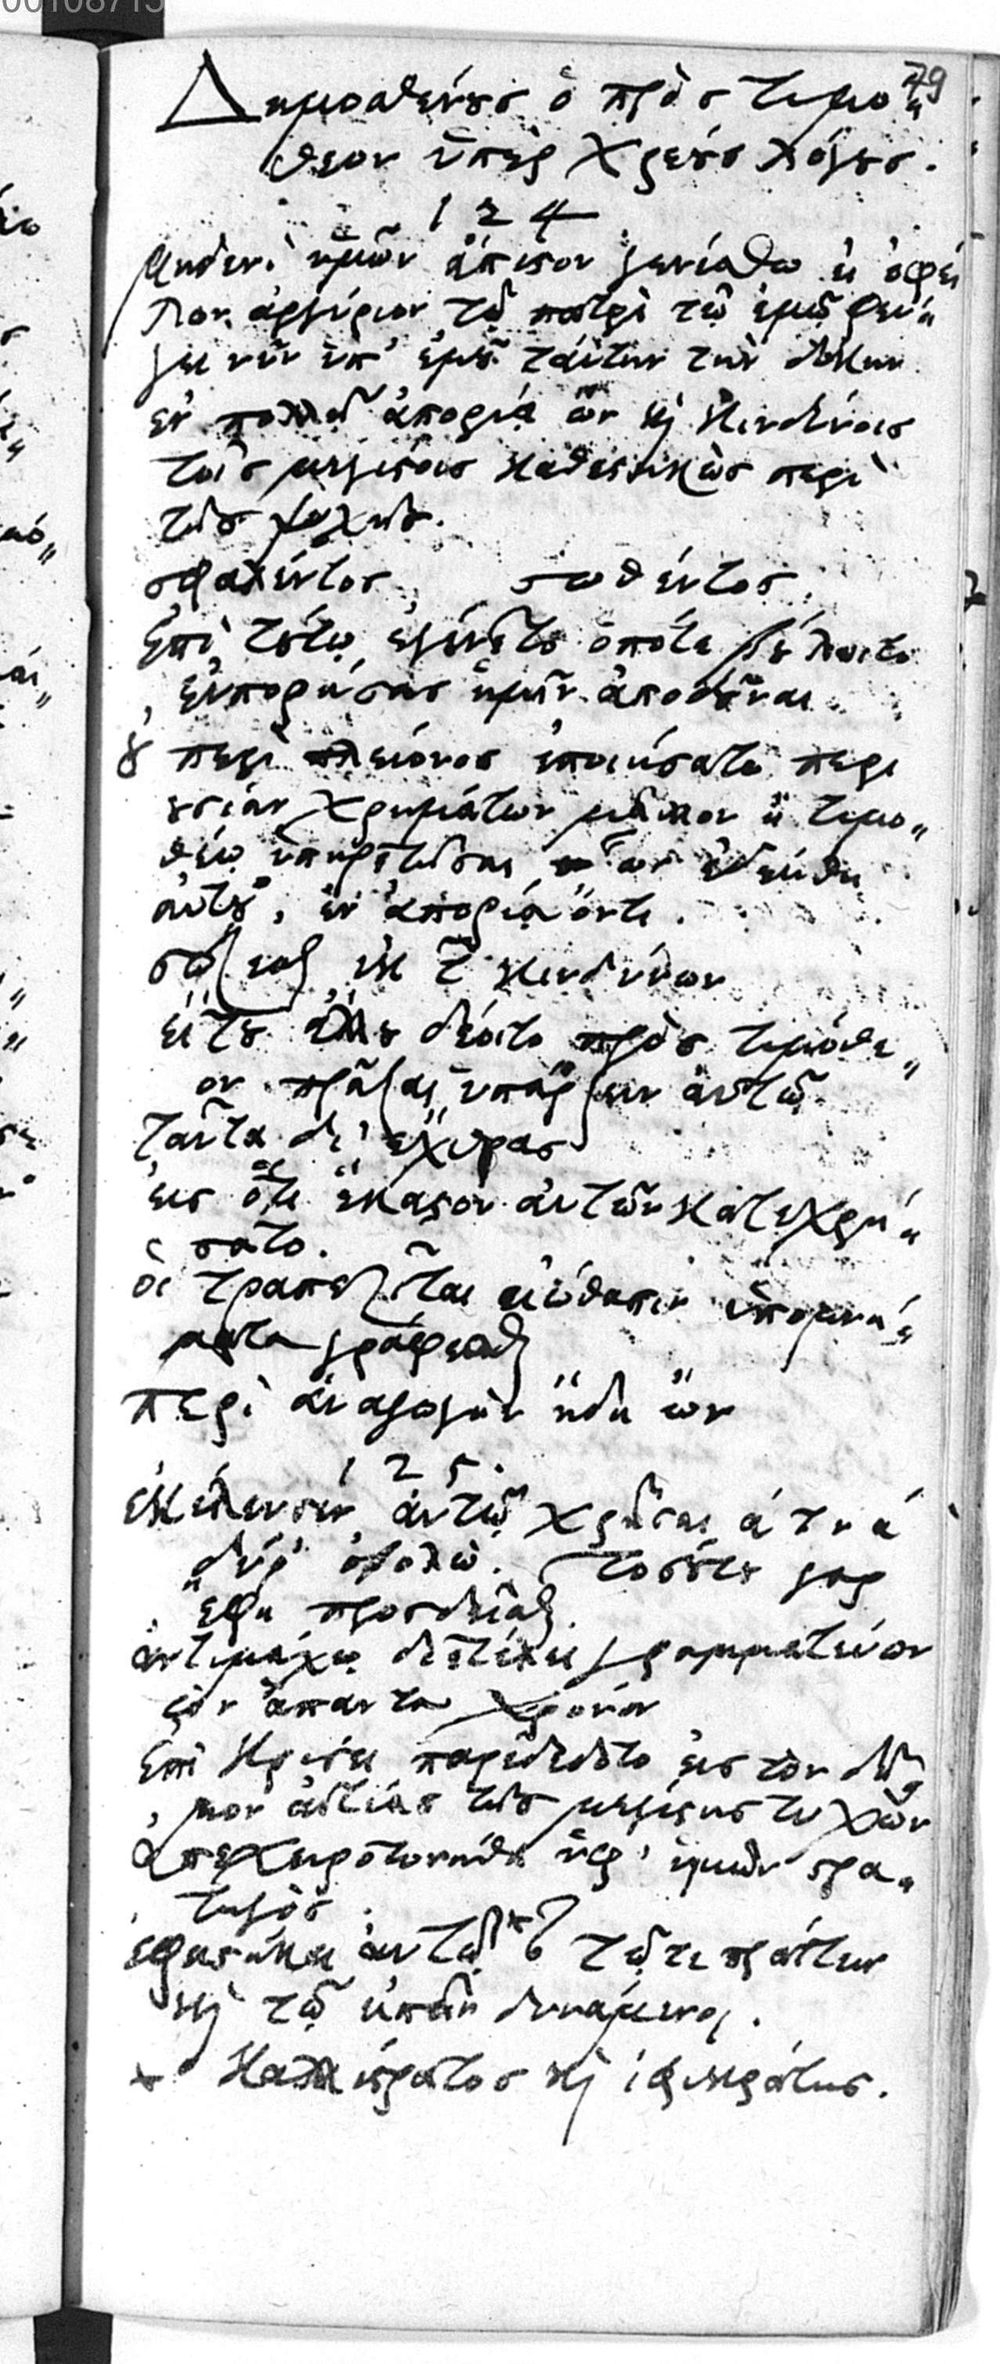 00108715
79
Δημοσθένους ὁ πρὸς Τιμό„
θεον ὑπὲρ χρέους λόγος.
124
Μηδενὶ ὑμῶν ἄπιστον γενέσθω εἰ ὀφεί
λων ἀργύριον τῷ πατρὶ τῷ ἐμῷ φεύ„
γει νῦν ὑπ' ἐμοῦ ταύτην τὴν δίκην
ἐν πολλῇ ἀπορίᾳ ὢν καὶ κινδύνοις
τοῖς μεγίστοις καθεστηκὼς περὶ
τῆς ψυχῆς.
σφαλέντος, σωθέντος.
ἐπὶ τούτῳ ἐγίνετο ὁπότε βούλοιτο
εὐπορήσας ἡμῖν ἀποδοῦναι.
οὐ περὶ πλείονος ἐποιήσατο περι
ουσίαν χρημάτων μᾶλλον ἢ Τιμο„
θέῳ ὑπηρετῆσαι ὧν ἐδεήθη
αὐτοῦ, ἐν ἀπορίᾳ ὄντι.
σώζεσθαι ἐκ τῶν κινδύνων
εἴ του ἄλλου δέοιτο πρὸς Τιμόθε„
ον πρᾶξαι ὑπάρξειν αὐτῷ
ταῦτα δι' ἔχθρας
εἰς ὅ,τι ἕκαστον αὐτῶν κατεχρή„
σατο.
οἱ τραπεζῖται εἰώθασιν ὑπομνή„
ματα γράφεσθαι
περὶ ἀναγωγὴν ἤδη ὢν
125.
ἐκέλευσεν αὐτῷ χρῆσαι α τ ν α
δύ' ὀβολώ. τοσούτου γὰρ
ἔφη προσδεῖσθαι.
Ἀντιμάχῳ γραμματεύων
τὸν ἅπαντα χρόνον
ἐπὶ κρίσει παρεδέδοτο εἰς τὸν δῆ„
μον αἰτίας τῆς μεγίστης τυχὼν
ἀπεχειροτονήθη ὑφ' ὑμῶν στρα„
τηγὸς.
ἐφειστήκει αὐτῷ* τῷ τε πράττειν
καὶ τῷ εἰπεῖν δυνάμενοι.
* Καλλίστρατος καὶ Ἰφικράτης.